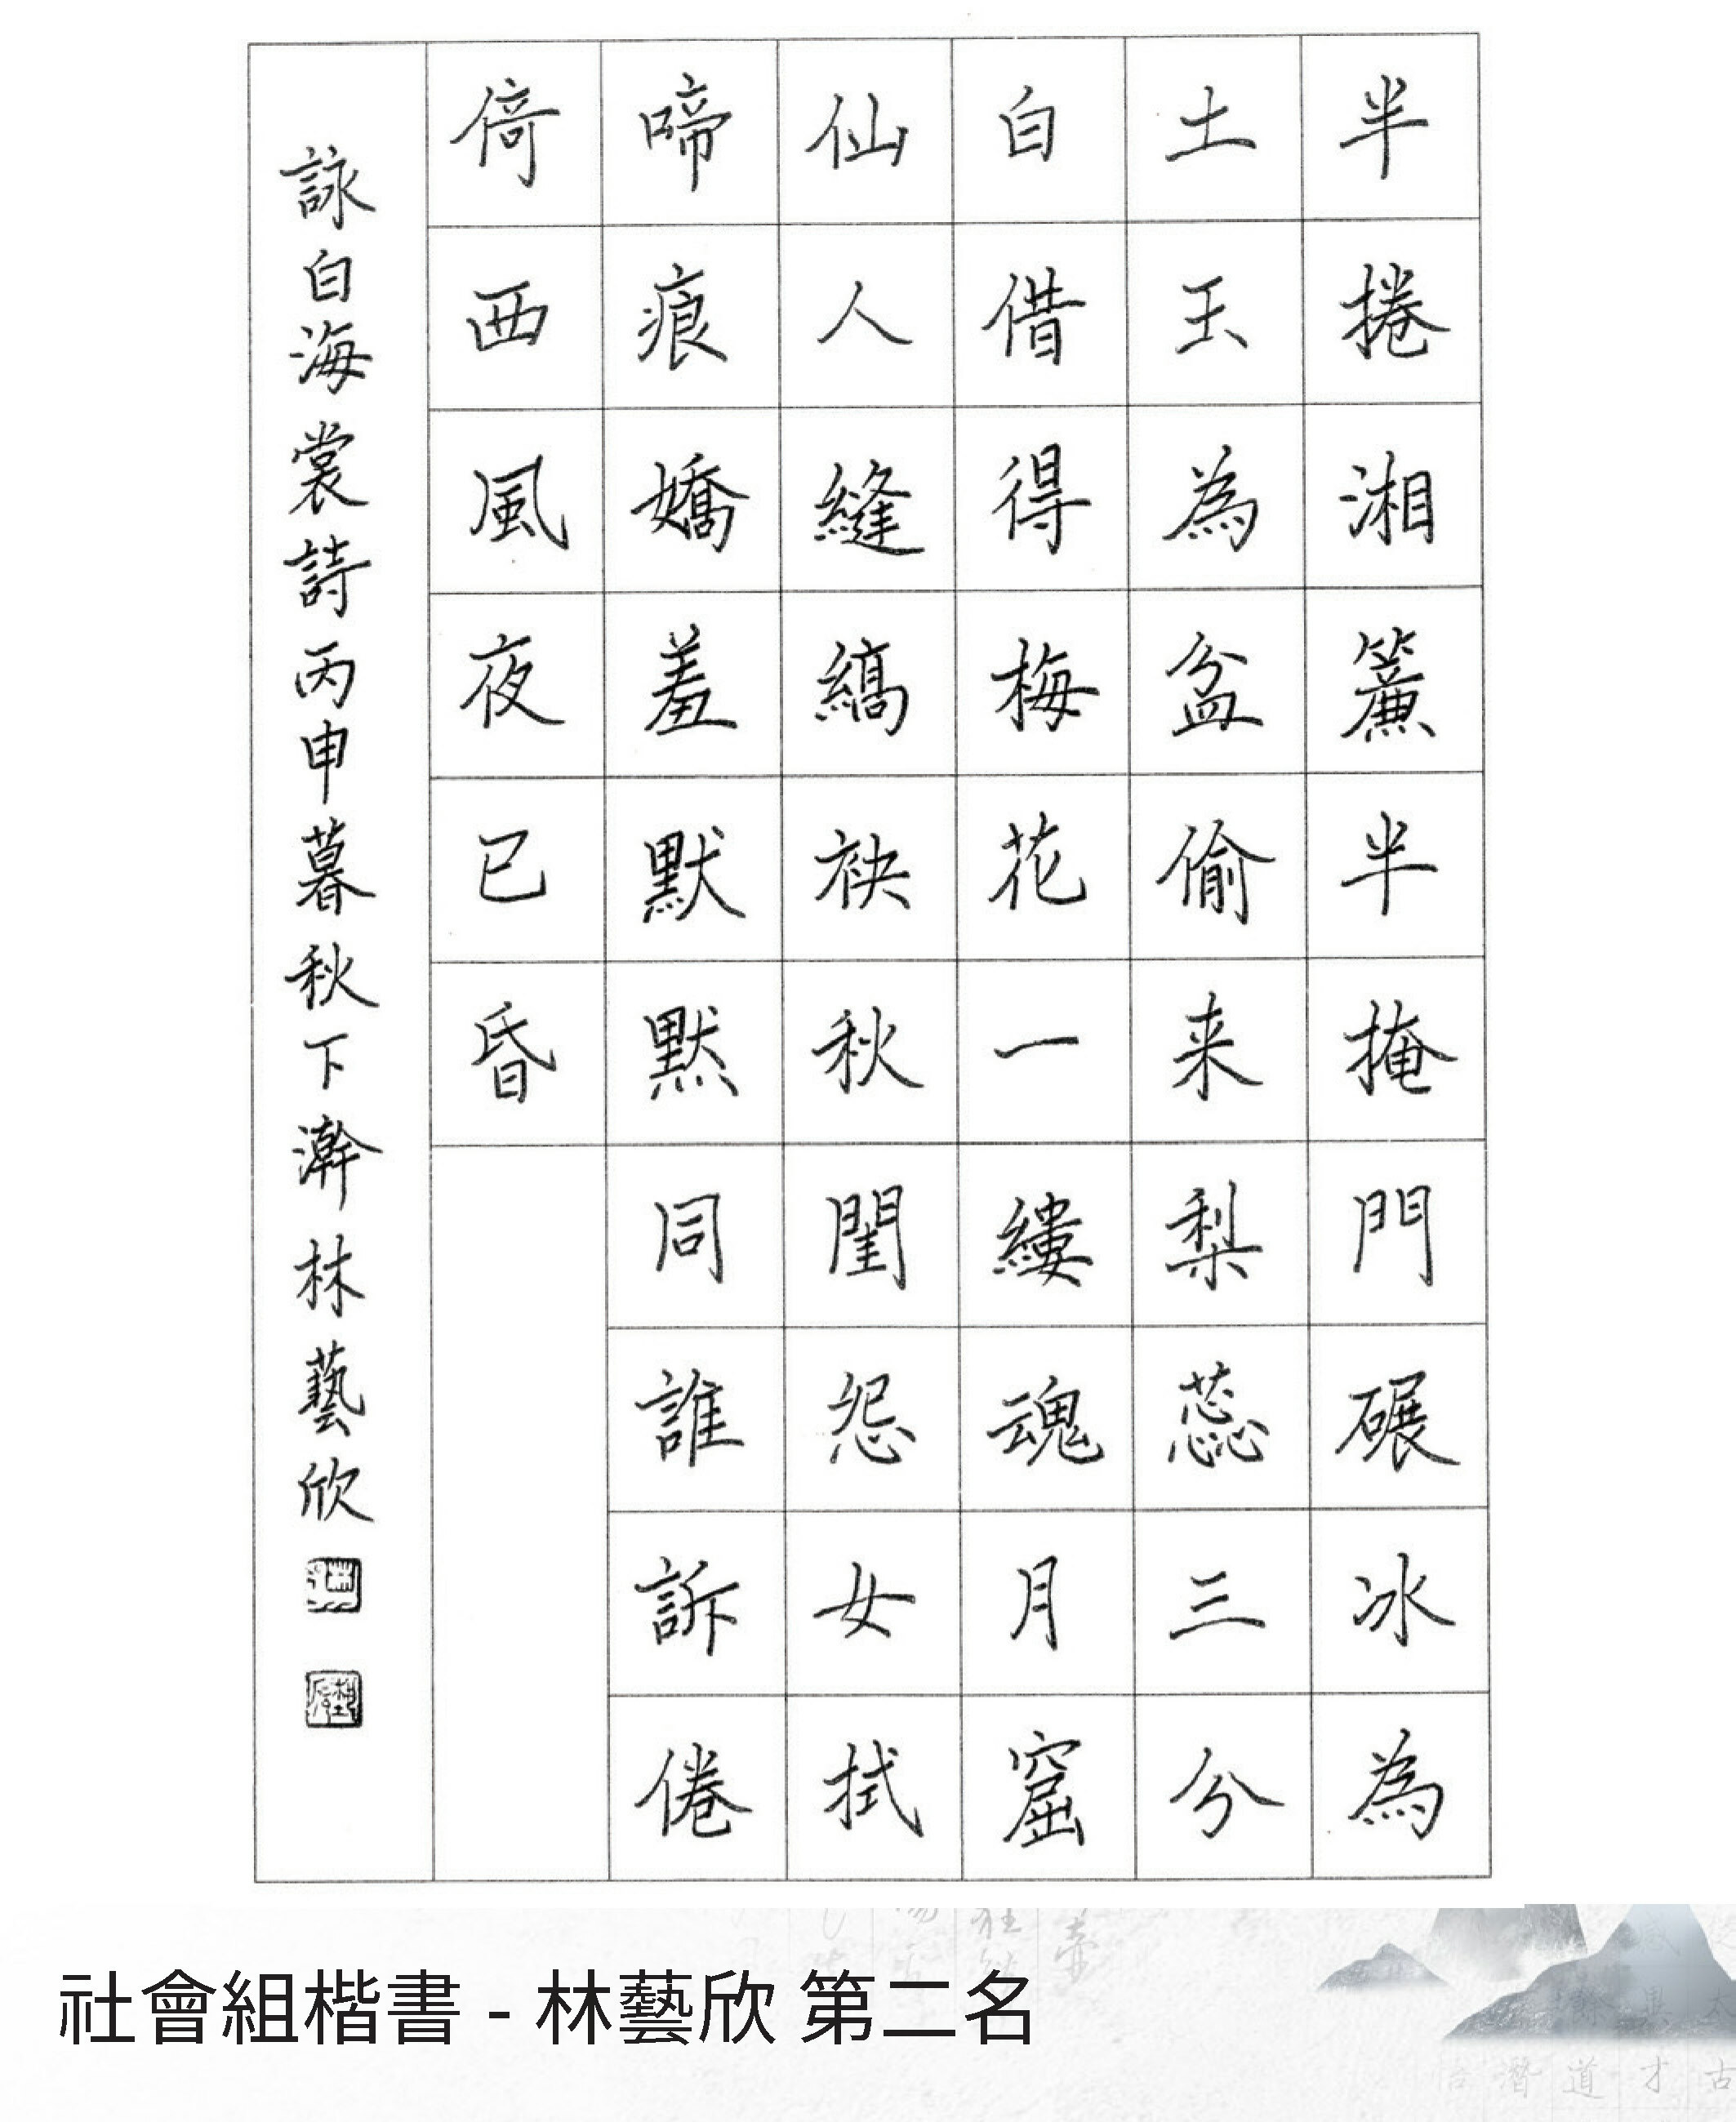 半捲湘簾半掩門碾冰為
土玉為盆偷来梨蕊三分
白借得梅花一縷魂月窟
仙人縫縞袂秋閨怨女拭
啼痕嬌羞默默同誰訴倦
倚西風夜已昏
詠白海裳詩丙申暮秋下澣林藝欣
社會組楷書 - 林藝欣 第二名